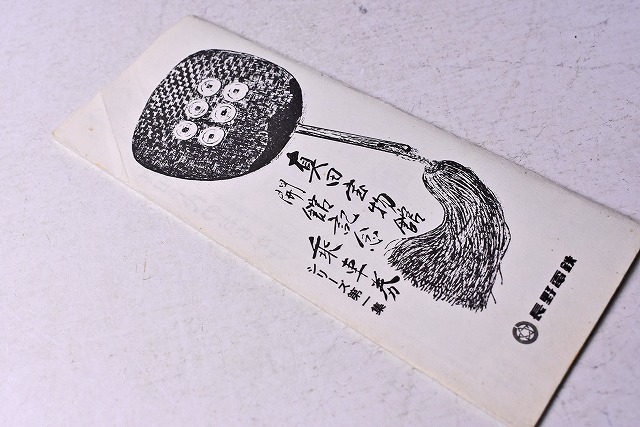 真田宝物館
開館記念
乗車券
シリーズ第一集
長野電鉄